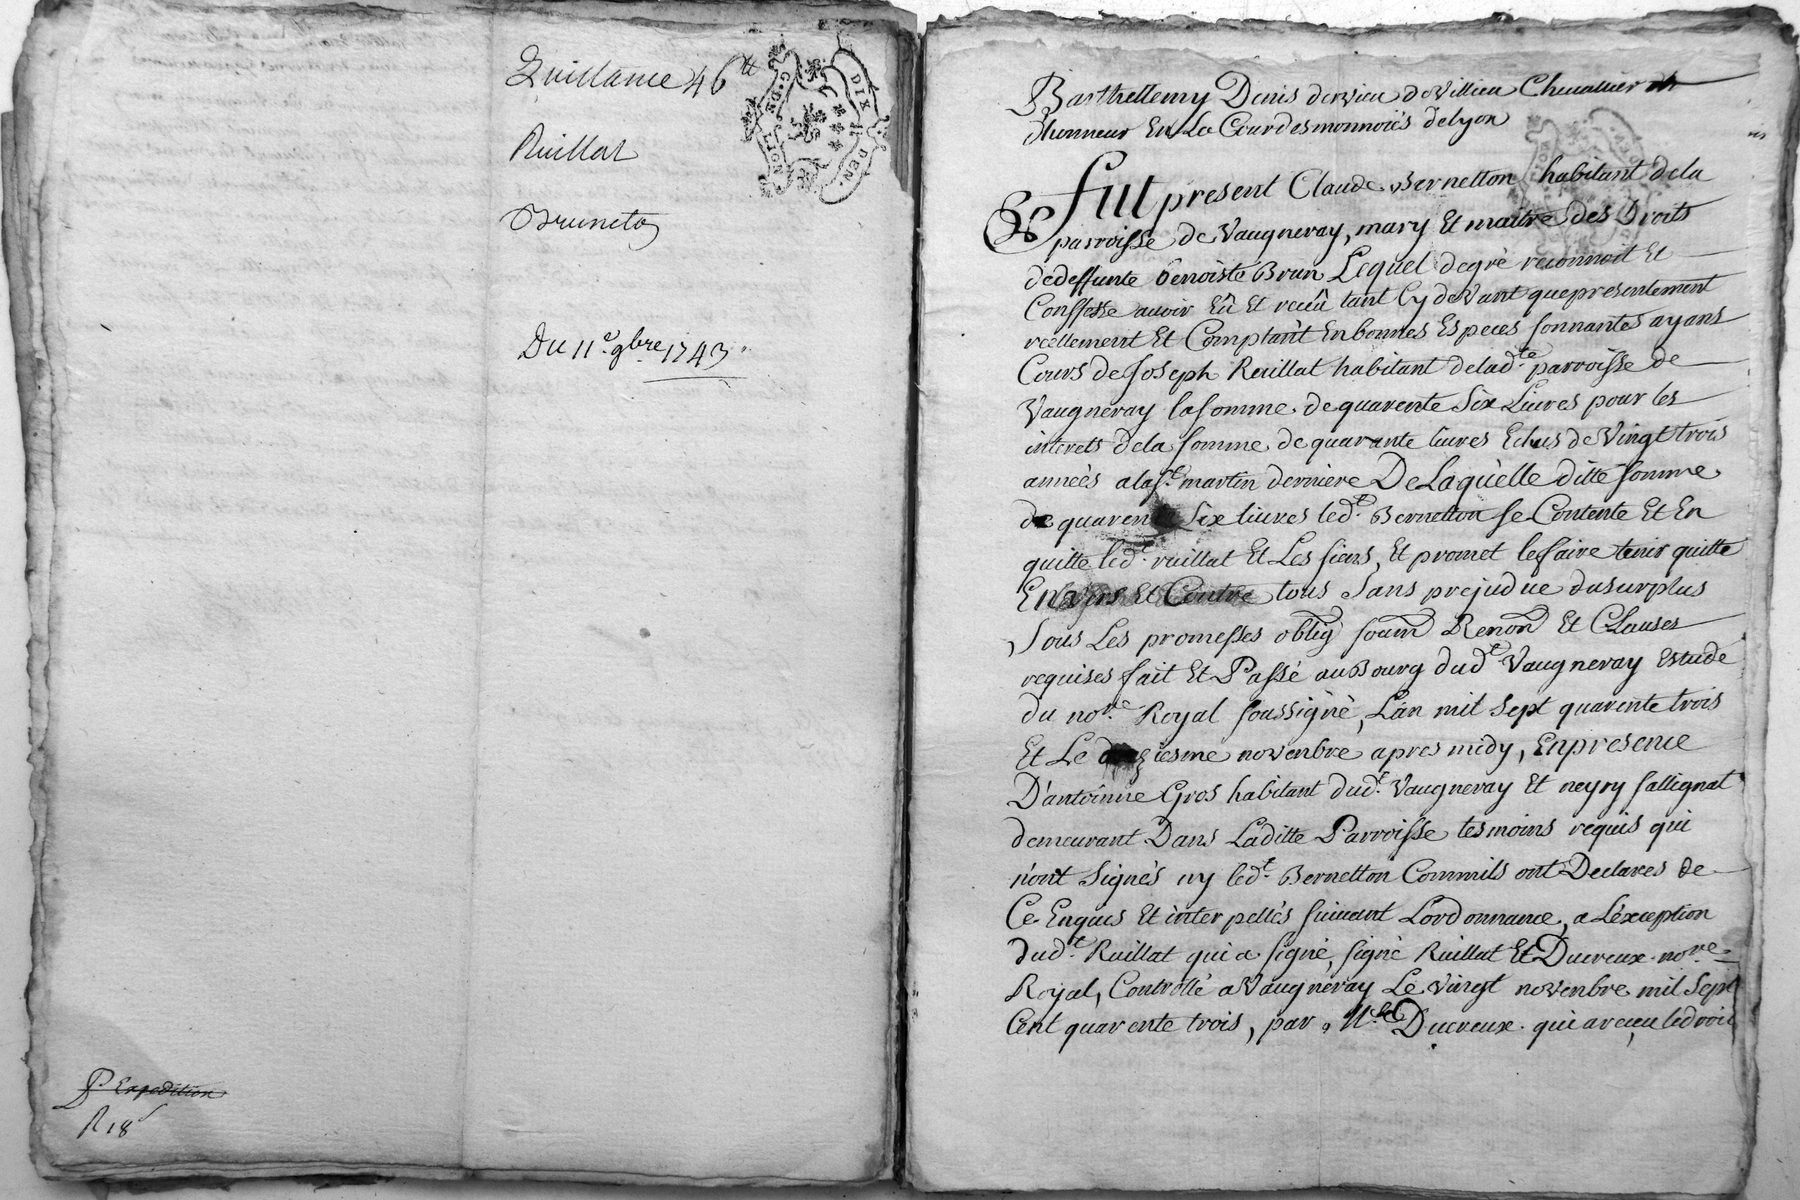 Quittance 46tt
G. DE. LION.
DIX DEN.
Ruillat
Bruneton
Du 11e. 9bre 1743.
Pr Expedition
R 18s
Barthellemy Denis devieu de villieu Chevallier
dhonneur En La Cour des monnoiès delyon
fut present Claude Bernetton habitant dela
parroisse de Vaugneray, mary Et maitre des Droits
dedeffunte benoiste Brun Lequel degrè reconnoit Et
Conffesse avoir Eû Et recëû tant Cy devant quepresentement
rëellement Et Comptant En bonnes Especes sonnantes ayans
Cours de Joseph Ruillat habitant delad.te parroisse de
Vaugneray lasomme de quarente Six Livres pour les
interets dela somme de quarante livres Echus de Vingt trois
années a la st. martin derniere De Laquelle ditte somme
de quarente Six livres led.t Bernetton se Contente Et En
quitte led.t ruillat Et Les siens, Et promet le faire tenir quitte
Envers Et Contre tous Sans prejudice du surplus
Sous Les promesses oblig soum Renon Et Clauses
requises fait Et Passé au Bourg dud.t Vaugneray Estude
du no.re Royal soussignè, L'an mil Sept quarente trois
Et Le onziesme novenbre apres midy, En presence
D'antoinne Gros habitant dud.t Vaugneray Et neyry sallignat
demeurant Dans Laditte Parroisse tesmoins requis qui
n'ont Signés ny led.t Bernetton Commils ont Declares de
Ce Enquis Et inter pellés suivant Lordonnance, a L'exception
dud.t Ruillat qui a signè, signè Ruillat Et Ducreux no.re
Royal, Controllè a Vaugneray Le vingt novenbre mil Sept
Cent quarente trois, par Ducreux qui a recëu led roit